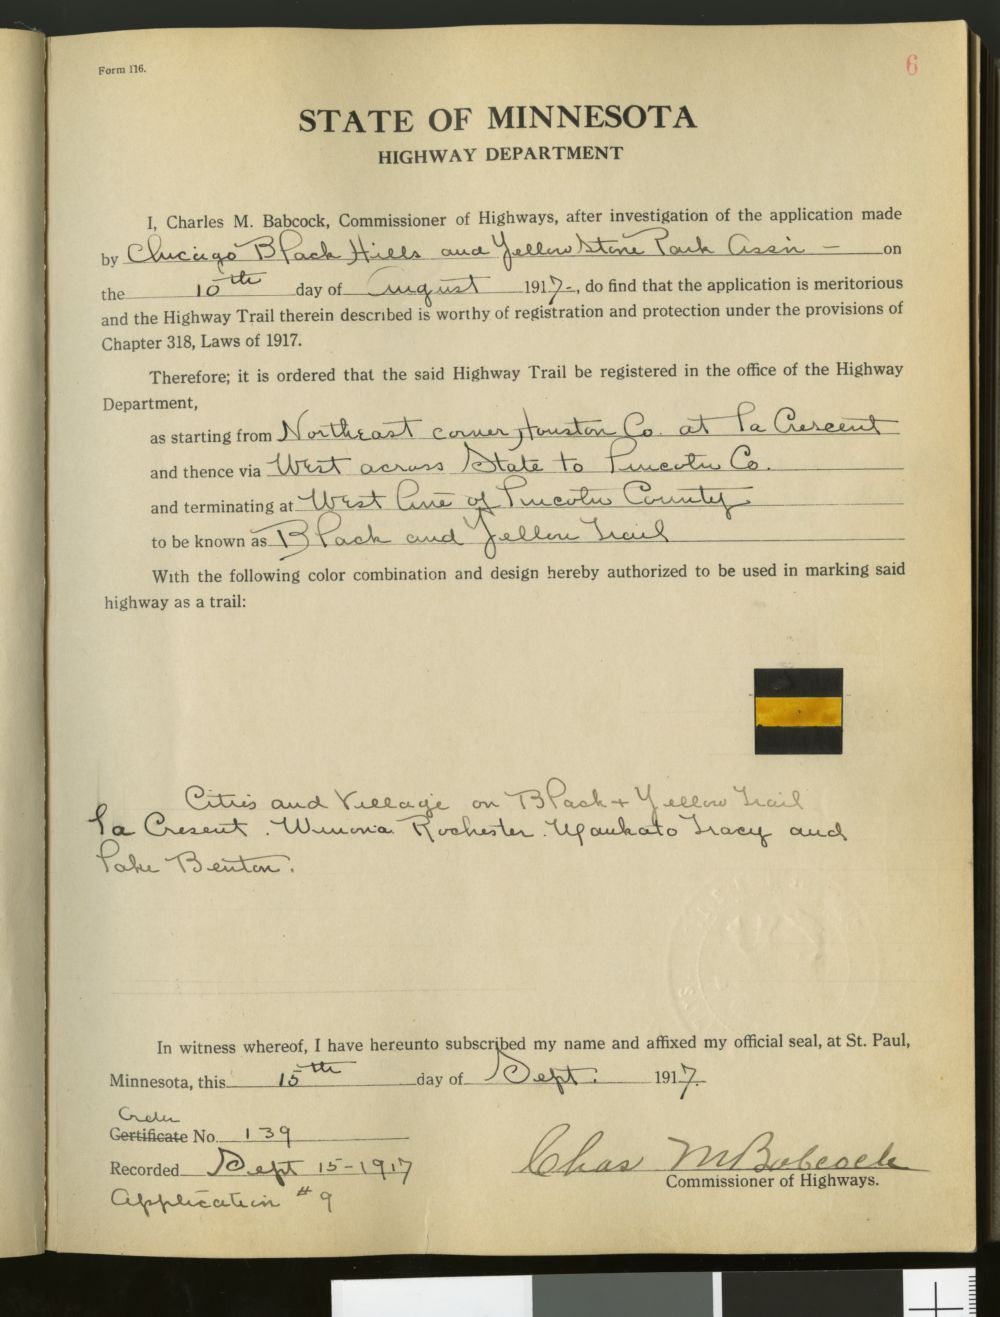 Form 116.
6
STATE OF MINNESOTA
HIGHWAY DEPARTMENT
I, Charles M. Babcock, Commissioner of Highways, after investigation of the application made
by Chicago Black Hills and Yellow Stone Park Ass'n - on
the 10th day of August 1917-, do find that the application is meritorious
and the Highway Trail therein described is worthy of registration and protection under the provisions of
Chapter 318, Laws of 1917.
Therefore; it is ordered that the said Highway Trail be registered in the office of the Highway
Department,
as starting from Northeast corner Houston Co. at La Crescent
and thence via West across State to Lincoln Co.
and terminating at West line of Lincoln County
to be known as Black and Yellow Trail
With the following color combination and design hereby authorized to be used in marking said
highway as a trail:
Cities and Village on Black + Yellow Trail
La Cresent. Winona. Rochester. Mankato Tracy and
Lake Benton.
In witness whereof, I have hereunto subscribed my name and affixed my official seal, at St. Paul,
Minnesota, this 15th day of Sept. 1917.
Order
Certificate No. 139
Recorded Sept 15-1917
Chas M Babcock
Commissioner of Highways.
Application #9